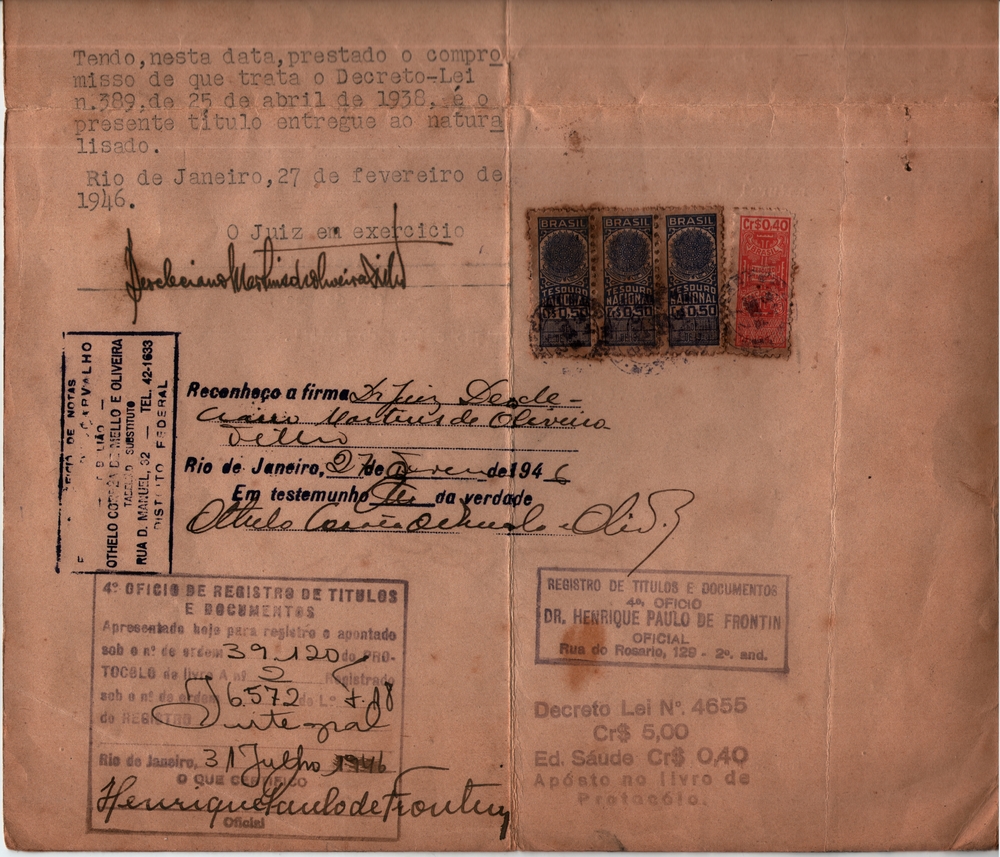 Tendo, nesta data, prestado o compro
misso de que trata o Decreto-Lei
n.389, de 25 de abril de 1938, é o
presente título entregue ao natura
lisado.
Rio de Janeiro, 27 de fevereiro de
1946.
O Juiz em exercicio
BRASIL
TESOURO
NACIONAL
Cr$0,50
BRASIL
TESOURO
NACIONAL
Cr$0,50
BRASIL
TESOURO
NACIONAL
Cr$0,50
Cr$0,40
BRASIL
DE NOTAS
OTHELO CORRÊA DE MELLO E OLIVEIRA
SUBSTITUTO
RUA D. MANUEL, 32 — TEL. 42-1633
DISTRITO FEDERAL
Reconheço a firma Dr Juiz Deocle-
ciano Martins de Oliveira
Filho
Rio de Janeiro, 27 de de 1946
Em testemunho da verdade
4º OFICIO DE REGISTRO DE TITULOS
E DOCUMENTOS
Apresentado hoje para registro e apontado
sob o nº de ordem 39.120 do PRO-
TOCOLO do livro A nº 2 Registrado
sob o nº de ordem 6572 do Lº
do REGISTRO Integral
Rio de Janeiro, 31 Julho 1946
O QUE CERTIFICO
Henrique Paulo de Frontin
Oficial
REGISTRO DE TITULOS E DOCUMENTOS
4º, OFICIO
DR. HENRIQUE PAULO DE FRONTIN
OFICIAL
Rua do Rosario, 129 - 2º. and.
Decreto Lei Nº. 4655
Cr$ 5,00
Ed. Sáude Cr$ 0,40
Apósto no livro de
Protocólo.